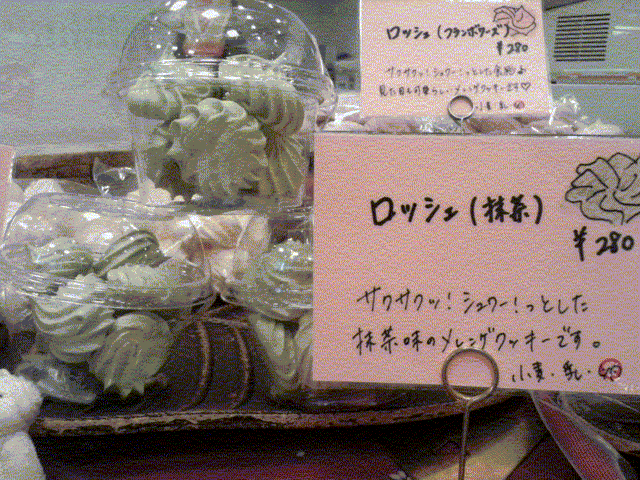 ロッシェ(フランボワーズ)
¥280
サクサクッ!シュワー!っとした食感と
見た目も可愛らしいメレンゲクッキーです♡
小麦 乳
ロッシェ(抹茶)
¥280
サクサクッ!シュワー!っとした
抹茶味のメレンゲクッキーです。
小麦・乳・